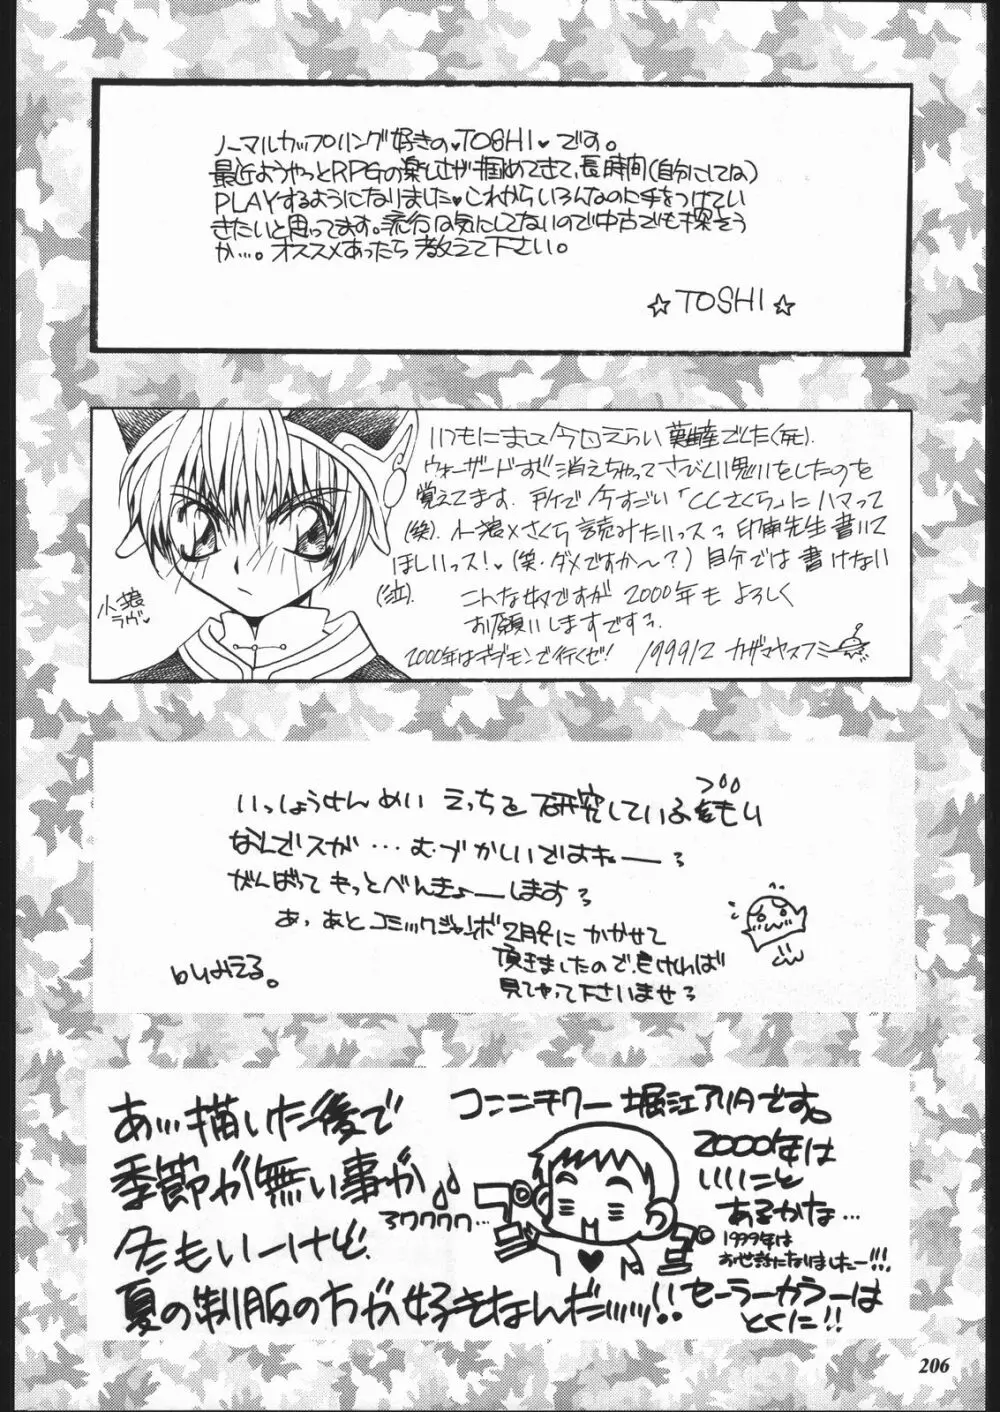 ノーマルカップリング好きの♥TOSHI♥です。
最近ようやっとRPGの楽しさが掴めてきて、長時間(自分にしてね)
PLAYするようになりました♥これからいろんなのに手をつけてい
きたいと思ってます。流行は気にしてないので中古でも探そう
か…。オススメあったら教えて下さい。
☆TOSHI☆
いつもにまして今回えらい 難産でした(死).
ウォーザードすが消えちゃってさびしい思いをしたのを
覚えてます. 所で今すごい「CCさくら」にハマって
(笑). 小狼×さくら 読みたいっスっ 先生書いて
ほしいっス!♥(笑・ダメですか～?) 自分では書けない
(泣).
小狼
ラヴ♥
こんな奴ですが 2000年も よろしく
お願いしますですっ.
2000年はデブモンで行くぜ! 1999 12 カザマヤスフミ
いっしょうせんめい えっちを 研究している積もり
なんでスが…むづかしいですねーっ
がんばって もっとべんきょーしますっ
あ、あと コミックジャンボ2月号に かかせて
頂きましたので良ければ
見てやって下さいませっ
byみえる。
コンニチワー 堀江アリタです。
あ…描いた後で
季節が無い事が♪
ろワワワワ…
冬もいーけど、
夏の制服の方が好きなんだッッッ!!
2000年は
いいこと
あるかな…
1999年は
お世話になりましたー!!!
セーラーカラーは
とくに!!
206